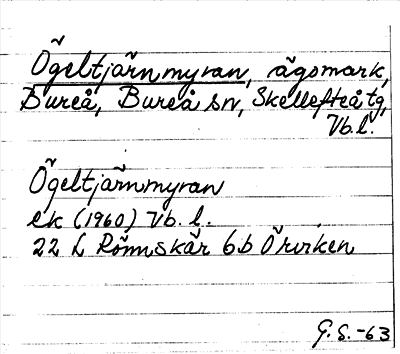 Ögeltjärnmyran, ägomark,
Bureå, Bureå sn, Skellefteå tg,
Vb.l.
Ögeltjärnmyran
ek (1960) Vb. l.
22 L Rönnskär 6b Örviken
G. S. -63